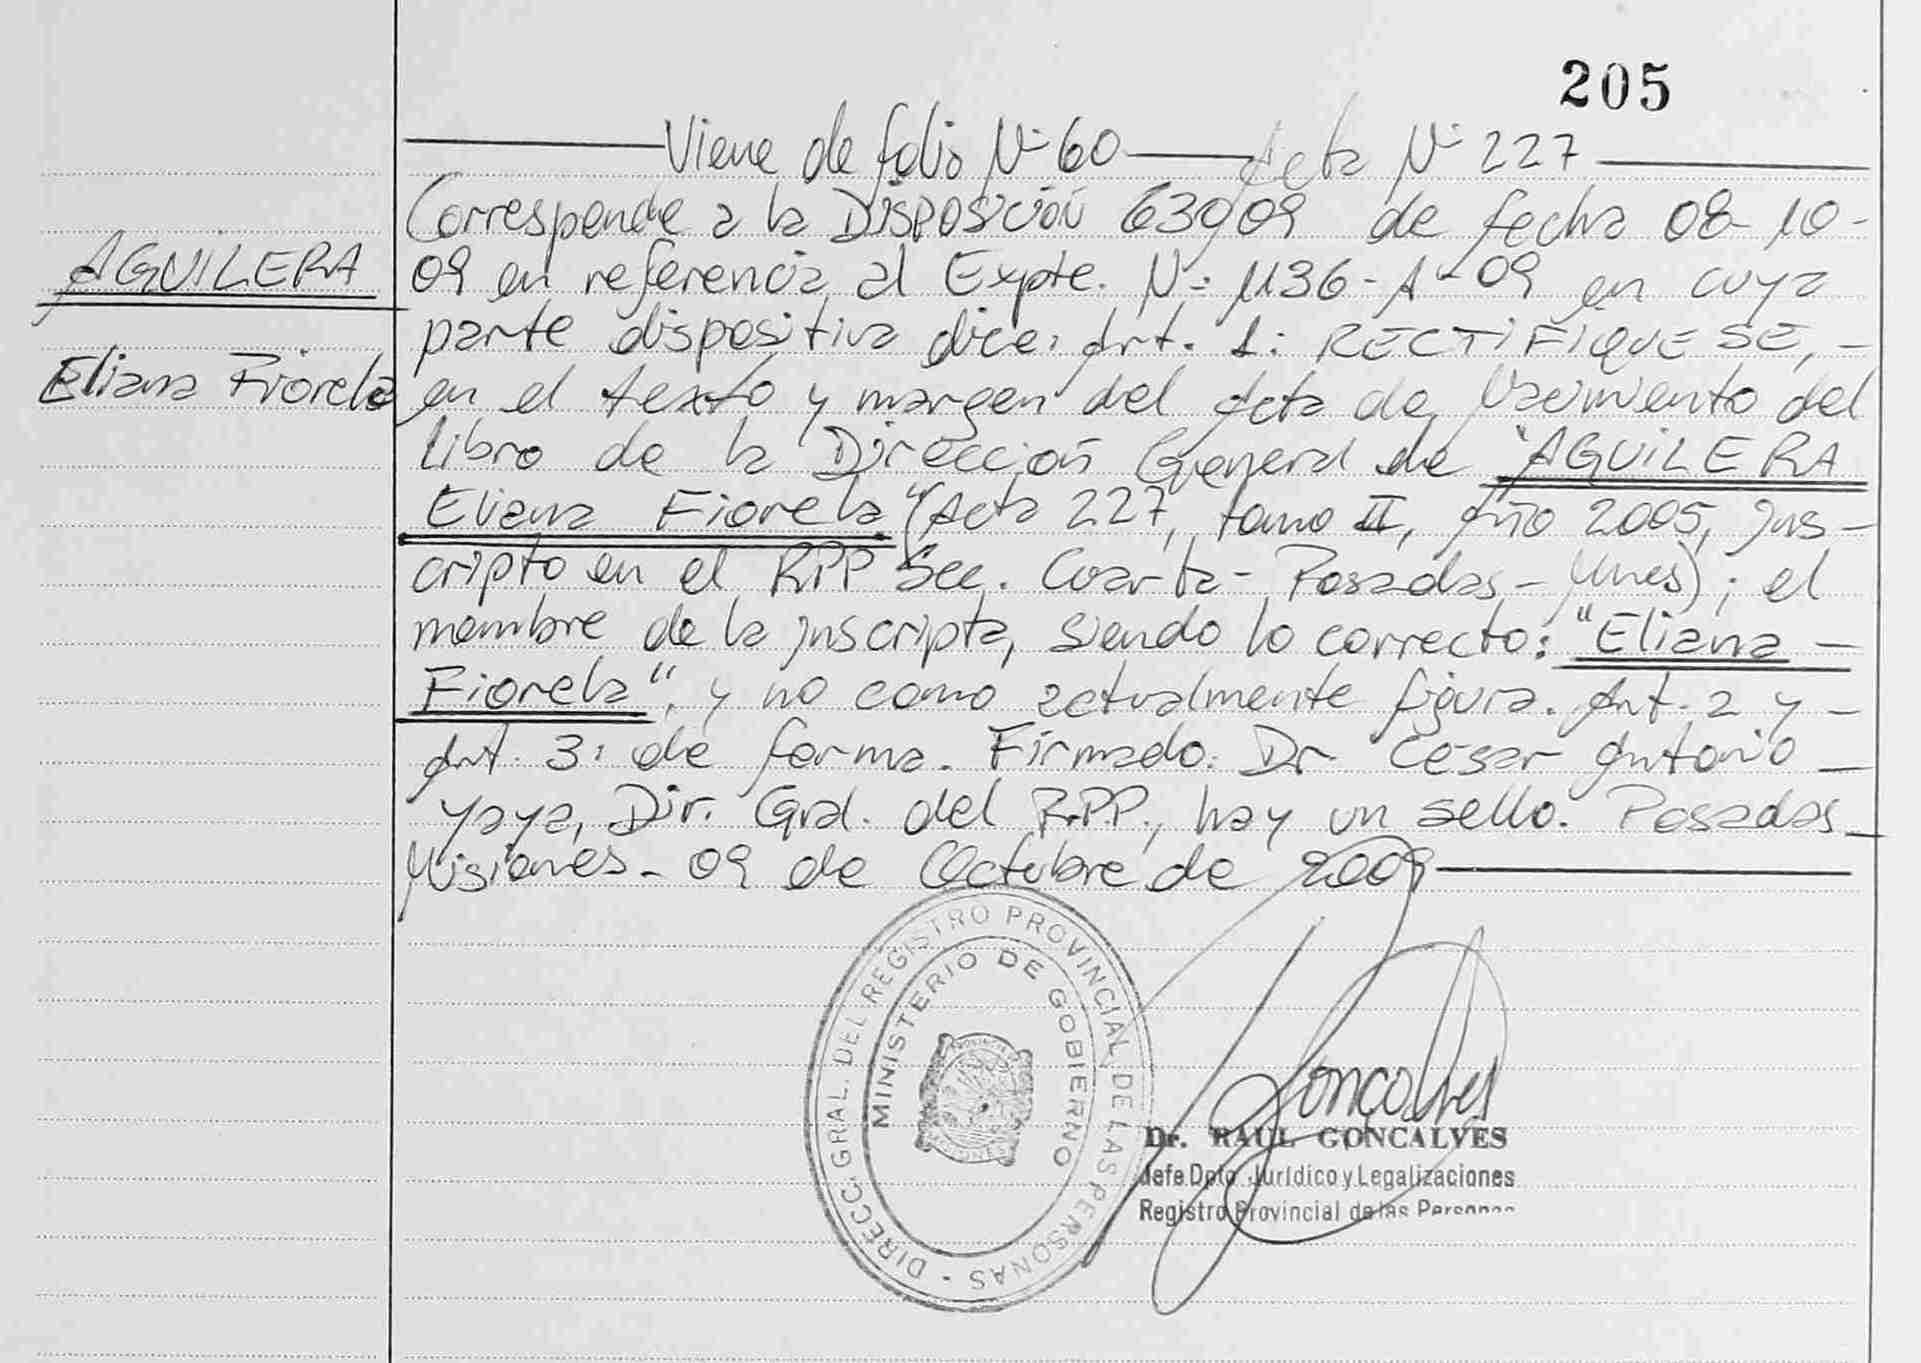 205
Viene de folio Nº 60 Acta Nº 227
AGUILERA
Eliana Fiorela
Corresponde a la Disposición 639/09 de fecha 08-10-
09 en referencia al Expte. Nº 1136-A-09 en cuya
parte dispositiva dice: Art. 1: RECTIFIQUESE, -
en el texto y margen del Acta de Nacimiento del
libro de la Dirección General de "AGUILERA
Eliana Fiorela" (Acta 227, tomo II, Año 2005, Ins-
cripto en el RPP Sec. Cuarta - Posadas - Mnes); el
nombre de la inscripta, siendo lo correcto: "Eliana -
Fiorela", y no como actualmente figura. Art. 2 y -
Art. 3: de forma. Firmado: Dr. Cesar Antonio -
Yaya, Dir. Gral. del R.PP., hay un sello. Posadas -
Misiones - 09 de Octubre de 2009
DIRECC. GRAL. DEL REGISTRO PROVINCIAL DE LAS PERSONAS -
MINISTERIO DE GOBIERNO
Goncalves
Dr. RAUL GONCALVES
Jefe Dpto. Jurídico y Legalizaciones
Registro Provincial de las Personas